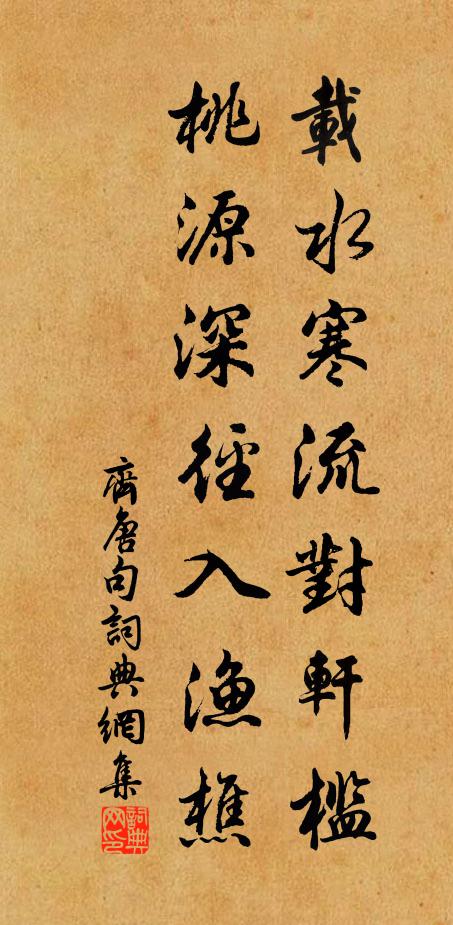 載水寒流對軒檻
桃源深徑入漁樵
齊唐句詞典網集
詞典网印